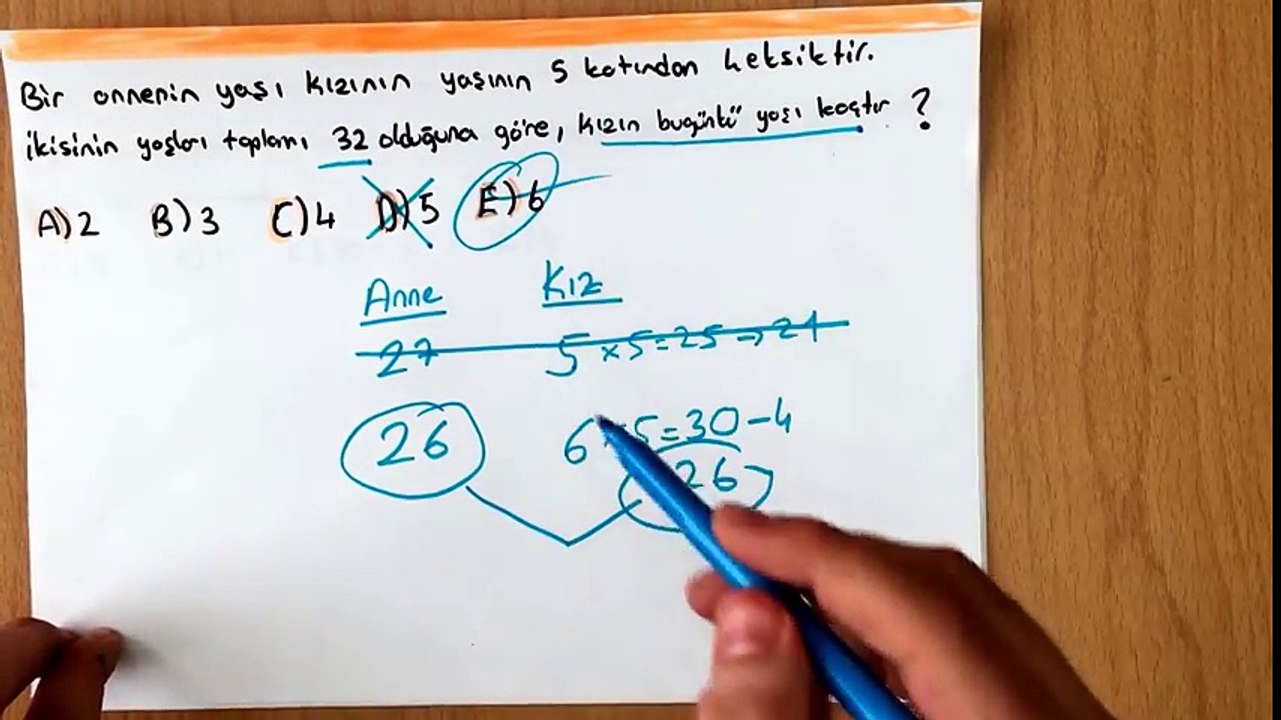 Bir annenin yaşı kızının yaşının 5 katından 4 eksiktir.
ikisinin yaşları toplamı 32 olduğuna göre, kızın bugünkü yaşı kaçtır ?
A)2 B)3 C)4 D)5 E)6
Anne Kız
27 5 x5=25 → 21
26 6 5=30-4
26